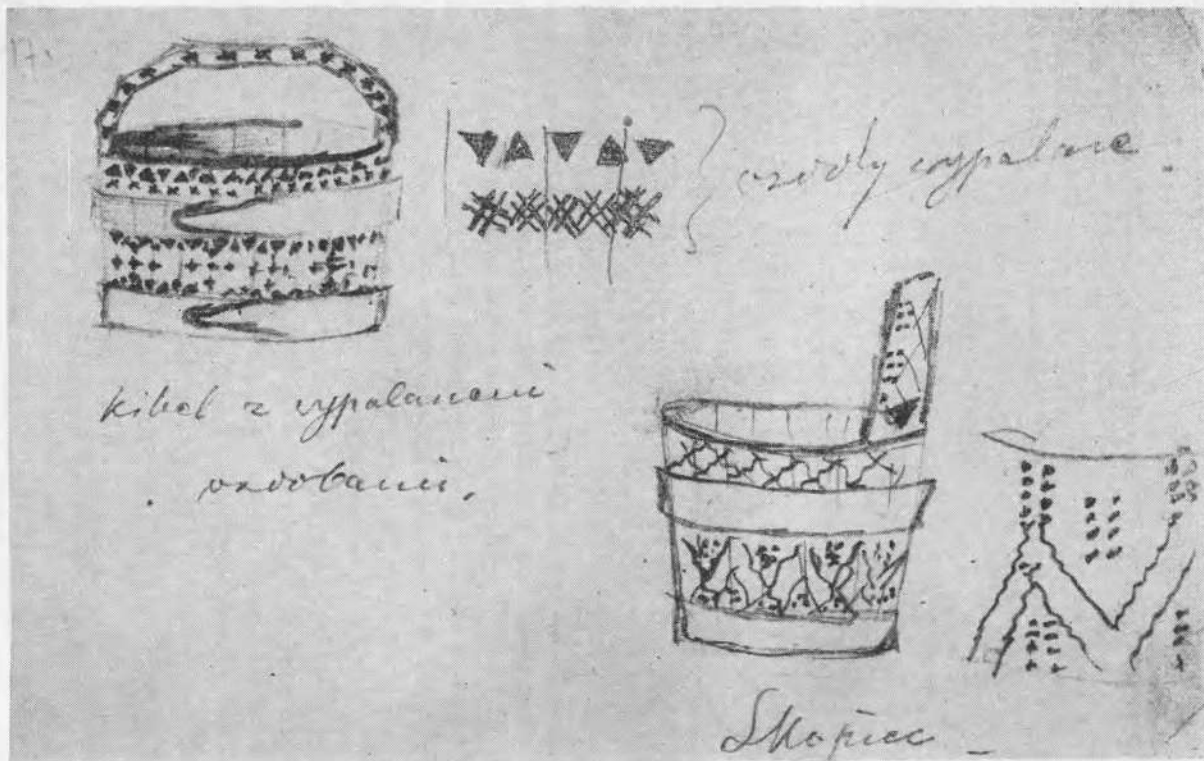 17.
wzory wypalane.
Kibel z wypalanemi
ozdobami.
Skopiec